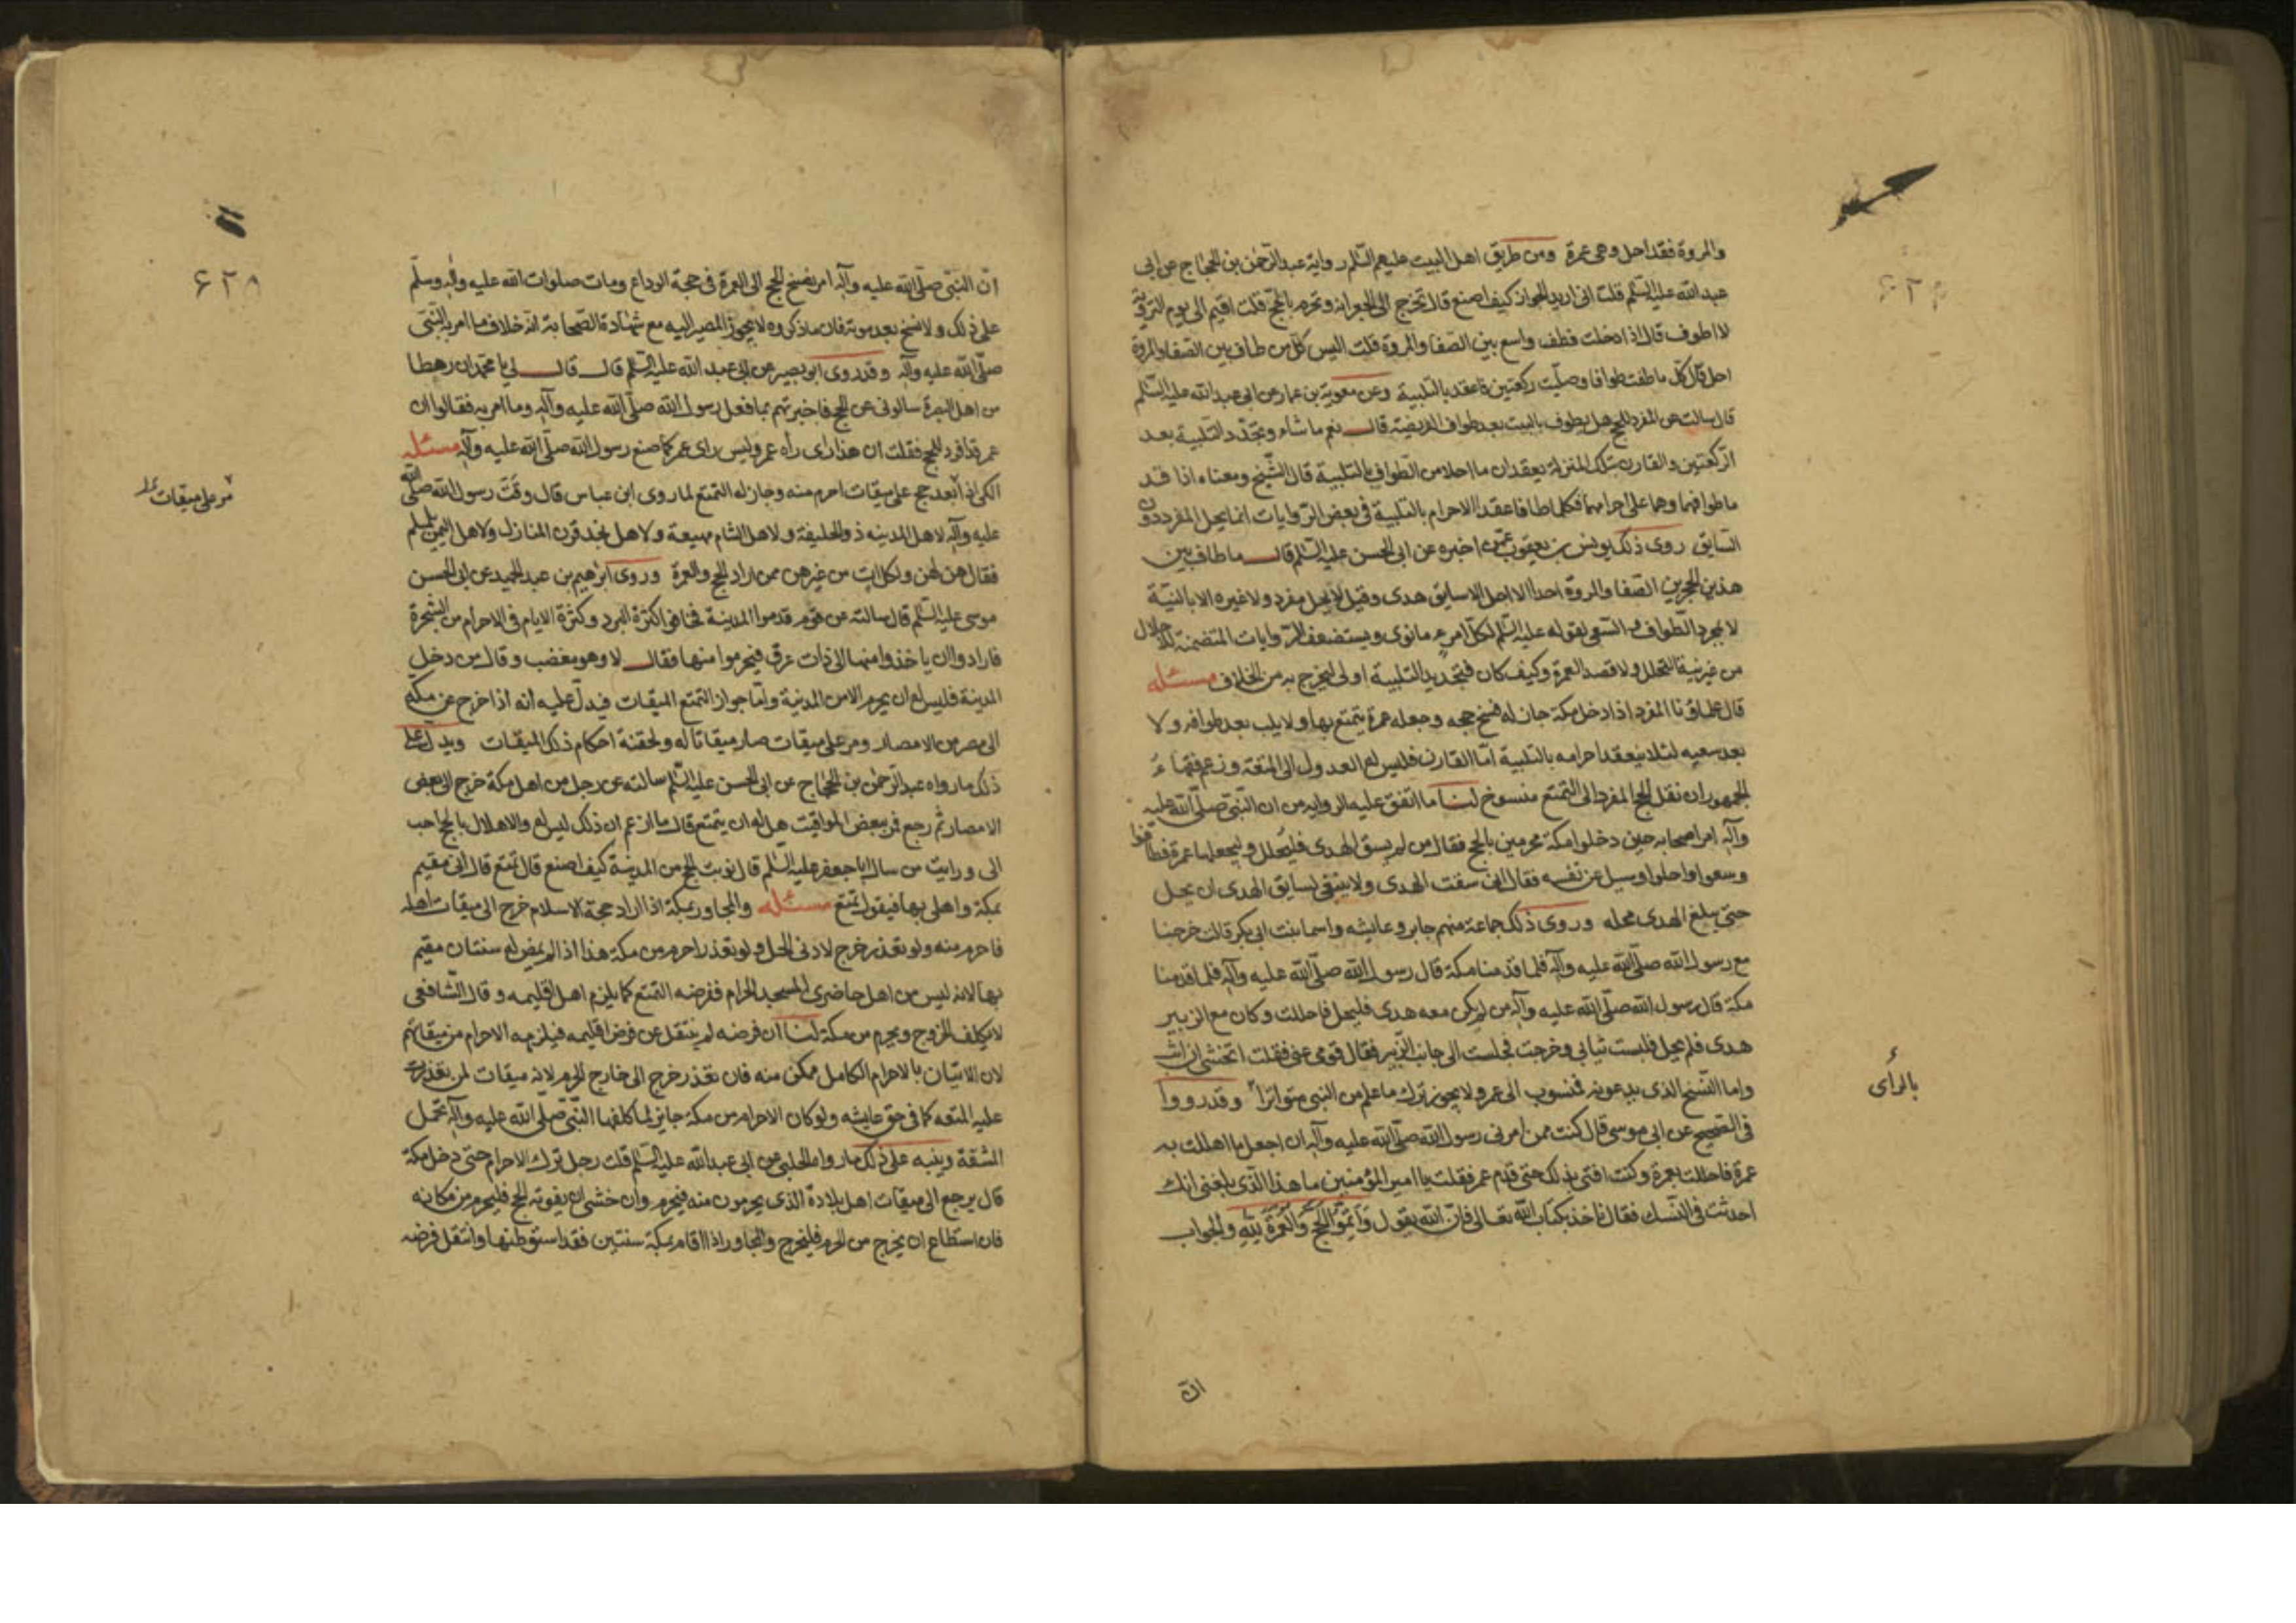 والمروة فقد احل وهى عمرة ومن طريق اهل البيت عليهم السّلم رواية عبد الرّحمن بن الحجاج عن ابى
عبد الله عليه السّلم قلت انى اريد الجواز كيف اصنع قال تخرج الى الجعرانه وتحرم بالحجّ قلت اقيم الى يوم التروية
لا اطوف قال اذا دخلت فطف واسع بين الصّفا والمروة قلت اليس كلّ من طاف بين الصّفا والمروة
احل قال كلّ ما طفت طوافا وصلّيت ركعتين فاعقد بالتّلبية وعن معوية بن عمار عن ابى عبد الله عليه السّلم
قال سالت عن المفرد للحج هل يطوف بالبيت بعد طواف الفريضة قال نعم ما شاء ويجدّد التّلبية بعد
الرّكعتين والقارن بتلك المنزلة يعقدان ما احلا من الطّواف بالتلبية قال الشّيخ ومعناه اذا قد
ما طوافهما وهما على احرامهما فكلما طافا عقد الاحرام بالتلبية فى بعض الرّوايات انما يحل المفرد دون
السّايق روى ذلك يونس بن يعقوب عمّن اخبره عن ابى الحسن عليه السّلم قال ما طاف بين
هذين الحجرين الصّفا والمروة احد الا احل الا سايق هدى وقيل لا يحل مفرد ولا غيره الا بالنيّة
لا بمجرد الطّواف و السّعى لقوله عليه السّلم لكلّ امرء ما نوى ويستضعف الرّوايات المتضمنة للاحلال
من غير نية التحلل ولا قصد العمرة وكيف كان فتجديد التلبية اولى ليخرج به من الخلاف مسئله
قال علماؤنا المفرد اذا دخل مكة جاز له فسخ حجه وجعله عمرة يتمتع بها ولا يلب بعد طوافه ولا
بعد سعيه لئلا ينعقد احرامه بالتلبية امّا القارن فليس له العدول الى المتعة وزعم فقهاء
الجمهور ان نقل الحج المفرد الى التمتع منسوخ لنا ما اتفق عليه الرواية من ان النّبى صلّى الله عليه
وآله امر اصحابه حين دخلوا مكة محرمين بالحج فقال من لم يسق الهدى فليحلل وليجعلها عمرة فطافوا
وسعوا واحلوا وسيل عن نفسه فقال انى سقت الهدى ولا ينبغى لسايق الهدى ان يحل
حتى يبلغ الهدى محله وروى ذلك جماعة منهم جابر وعايشه واسما بنت ابى بكر قالت خرجنا
مع رسول الله صلّى الله عليه وآله فلما قدمنا مكة قال رسول الله صلّى الله عليه وآله فلما قدمنا
مكة قال رسول الله صلّى الله عليه وآله من لم يكن معه هدى فليحل فاحللت وكان مع الزبير
هدى فلم يحل فلبست ثيابى وخرجت فجلست الى جانب الزّبير فقال قومى عنى فقلت اتخشى ان اثب
واما النّسخ الذى يدعونه فمنسوب الى عمر ولا يجوز ترك ما علم من النبى متواتراً وقد رووا
فى الصّحيح عن ابى موسى قال كنت ممن امرنى رسول الله صلّى الله عليه وآله ان اجعل ما اهللت به
عمرة فاحللت بعمرة وكنت افتى بذلك حتى قدم عمر فقلت يا امير المؤمنين ما هذا الّذى بلغنى انك
احدثت فى النّسك فقال ناخذ بكتاب الله تعالى فانّ الله يقول وَاَتِمّوُا الحَجَّ وَالعُمرَةَ لِلّهِ والجواب
بالراى
انّ
۶۲۸
انّ النّبّى صلّى الله عليه وآله امر بفسخ الحج الى العمرة فى حجة الوداع ومات صلوات الله عليه وآله وسلّم
على ذلك ولا نسخ بعد موته فان ما ذكروه لا يجوز المصير اليه مع شهادة الصّحابة انّه خلاف ما امر به النّبّى
صلّى الله عليه وآله وقد روى ابو بصير عن ابى عبد الله عليه السّلم قال قال لى يا محمد ان رهطا
من اهل البصرة سالونى عن الحج فاخبرتهم بما فعل رسول الله صلّى الله عليه وآله وما امر به فقالوا ان
عمر قد افرد الحج فقلت ان هذا راى رآه عمر وليس راى عمر كما صنع رسول الله صلّى الله عليه وآله مسئله
المكى اذا ابعد حج على ميقات احرم منه وجاز له التمتع لما روى ابن عباس قال وقّت رسول الله صلّى الله
عليه وآله لاهل المدينه ذو الحليفة ولاهل الشام مهيعة ولاهل نجد قرن المنازل ولاهل اليمن يلملم
فقال هن لهن ولكل ات من غيرهن ممن اراد الحج والعمرة وروى ابراهيم بن عبد الحميد عن ابى الحسن
موسى عليه السّلم قال سالته عن قوم قدموا المدينة فخافوا كثرة البرد وكثرة الايام فى الاحرام من الشجرة
فارادوا ان ياخذوا منها الى ذات عرق فيحرموا منها فقال لا وهو مغضب وقال من دخل
المدينة فليس له ان يحرم الا من المدينة وامّا جواز التمتع الميقات فيدلّ عليه انه اذا خرج عن مكه
الى مصر من الامصار ومر على ميقات صار ميقاتا له ولحقته احكام ذلك الميقات ويدل على
ذلك ما رواه عبد الرّحمن بن الحجاج عن ابى الحسن عليه السّلم سالته عن رجل من اهل مكة خرج الى بعض
الامصار ثم رجع فمر ببعض المواقيت هل له ان يتمتع قال ما ازعم ان ذلك ليس له والاهلال بالحج احب
الى ورايت من سال ابا جعفر عليه السّلم قال نويت الحج من المدينة كيف اصنع قال تمتع قال انى مقيم
بمكة واهلى بها فيقول تمتع مسئله والمجاور بمكة اذا اراد حجة الاسلام خرج الى ميقات اهله
فاحرم منه ولو تعذر خرج لادنى الحل ولو تعذر احرم من مكة هذا اذا لم يمض له سنتان مقيم
بها لانه ليس من اهل حاضرى المسجد الحرام ففرضه التمتع كما يلزم اهل اقليمه وقال الشّافعى
لا يكلف الخروج ويحرم من مكة لنا ان فرضه لم ينتقل عن فرض اقليمه فيلزمه الاحرام من ميقاتهم
لان الاتيان بالاحرام الكامل ممكن منه فان تعذر خرج الى خارج الحرم لانه ميقات لمن تعذرت
عليه المتعه كما فى حق عايشه ولو كان الاحرام من مكة جايز لما كلفها النّبّى صلّى الله عليه وآله تحمل
المشقة وينبه على ذلك ما رواه الحلبى عن ابى عبد الله عليه السّلم قلت رجل ترك الاحرام حتى دخل مكة
قال يرجع الى ميقات اهل بلاده الذى يحرمون منه فيحرم وان خشى ان يفوته الحج فليحرم من مكانه
فان استطاع ان يخرج من الحرم فليخرج والمجاور اذا اقام بمكة سنتين فقد استوطنها وانتقل فرضه
مر على ميقات